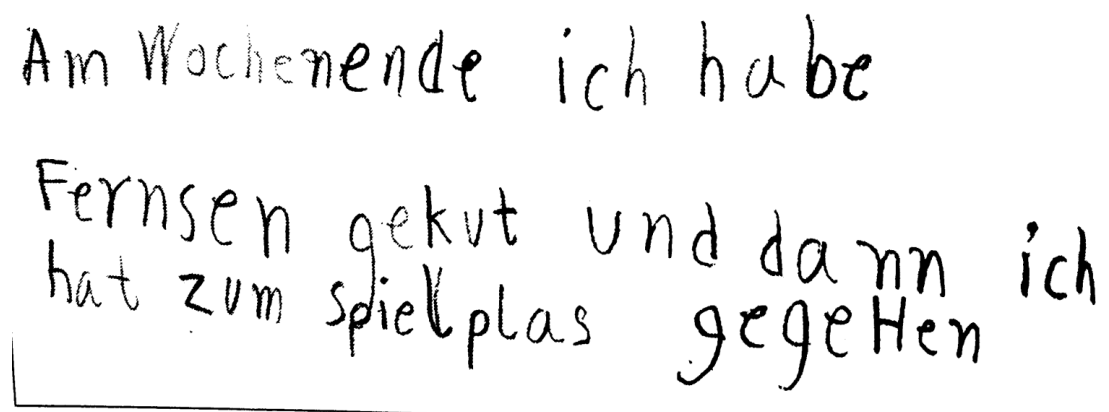 Am Wochenende ich habe
Fernsen gekut und dann ich
hat zum spielplas gegeHen